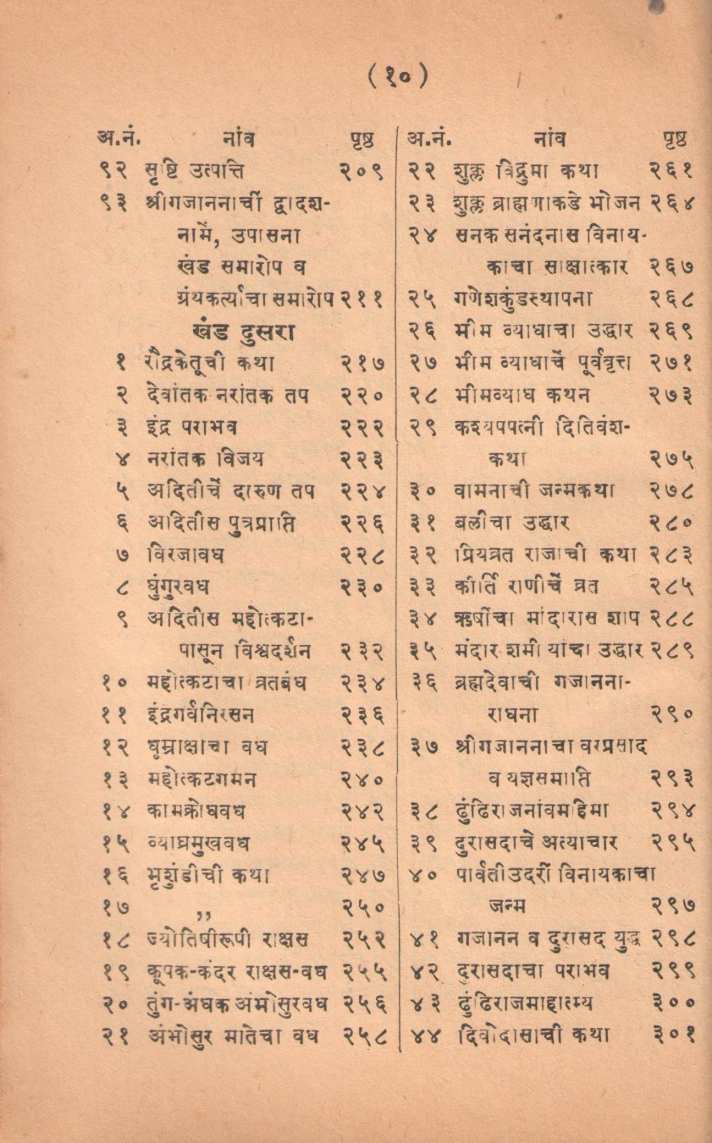 (१०)
अ.नं. नांव पृष्ठ
९२ सृष्टि उत्पत्ति २०९
९३ श्रीगजाननाचीं द्वादश-
नामें, उपासना
खंड समारोप व
ग्रंथकर्त्याचा समारोप २११
खंड दुसरा
१ रौद्रकेतूची कथा २१७
२ देवांतक नरांतक तप २२०
३ इंद्र पराभव २२२
४ नरांतक विजय २२३
५ अदितीचें दारुण तप २२४
६ अदितीस पुत्रप्राप्ति २२६
७ विरजावध २२८
८ घुंगुरवध २३०
९ अदितीस महोत्कटा-
पासून विश्वदर्शन २३२
१० महोत्कटाचा व्रतबंध २३४
११ इंद्रगर्वनिरसन २३६
१२ धूम्राक्षाचा वध २३८
१३ महोत्कटगमन २४०
१४ कामक्रोधवध २४२
१५ व्याघ्रमुखवध २४५
१६ भृशुंडीची कथा २४७
१७ ,, २५०
१८ ज्योतिषीरूपी राक्षस २५२
१९ कूपक-कंदर राक्षस-वध २५५
२० तुंग-अंधक अंभोसुरवध २५६
२१ अंभोसुर मातेचा वध २५८
अ.नं. नांव पृष्ठ
२२ शुक्ल विद्रुमा कथा २६१
२३ शुक्ल ब्राह्मणाकडे भोजन २६४
२४ सनक सनंदनास विनाय-
काचा साक्षात्कार २६७
२५ गणेशकुंडस्थापना २६८
२६ भीम व्याधाचा उद्धार २६९
२७ भीम व्याधाचें पूर्ववृत्त २७१
२८ भीमव्याध कथन २७३
२९ कश्यपपत्नी दितिवंश-
कथा २७५
३० वामनाची जन्मकथा २७८
३१ बलीचा उद्धार २८०
३२ प्रियव्रत राजाची कथा २८३
३३ कीर्ति राणीचें व्रत २८५
३४ ऋषींचा मांदारास शाप २८८
३५ मंदार शमी यांचा उद्धार २८९
३६ ब्रह्मदेवाची गजानना-
राधना २९०
३७ श्रीगजाननाचा वरप्रसाद
व यज्ञसमाप्ति २९३
३८ ढुंढिराजनांवमहिमा २९४
३९ दुरासदाचे अत्याचार २९५
४० पार्वतीउदरीं विनायकाचा
जन्म २९७
४१ गजानन व दुरासद युद्ध २९८
४२ दुरासदाचा पराभव २९९
४३ ढुंढिराजमाहात्म्य ३००
४४ दिवोदासाची कथा ३०१